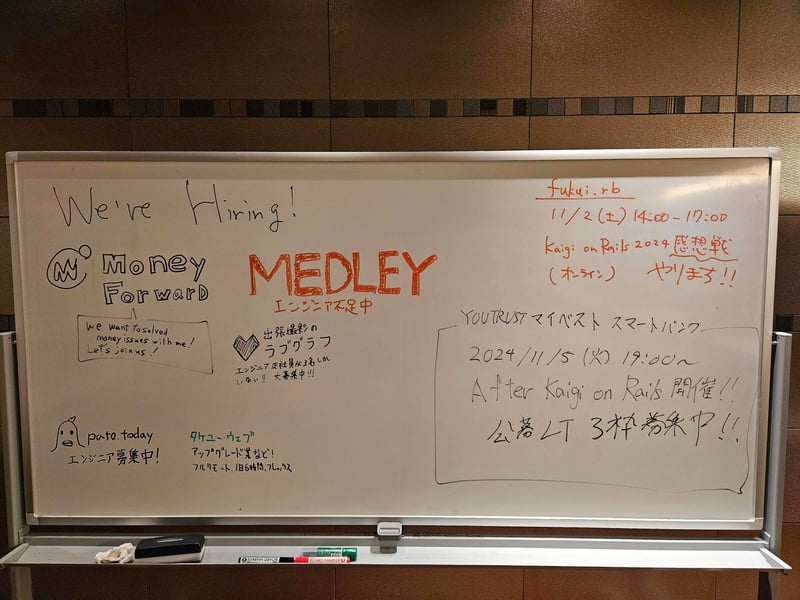 We're Hiring!
Money
Forward
We want to solved
money issues with me!
Let's join us!
MEDLEY
エンジニア不足中
出張撮影の
ラブグラフ
エンジニア正社員が3名しか
いない!! 大募集中!!!
pato.today
エンジニア募集中!
タケユー・ウェブ
アップグレード業など!
フルリモート、1日6時間、フレックス
fukui.rb
11/2(土)14:00-17:00
Kaigi on Rails 2024 感想戦
(オンライン) やります!!
YOUTRUST マイベスト スマートバンク
2024/11/5(火)19:00~
After Kaigi on Rails 開催!!
公募LT 3枠募集中!!